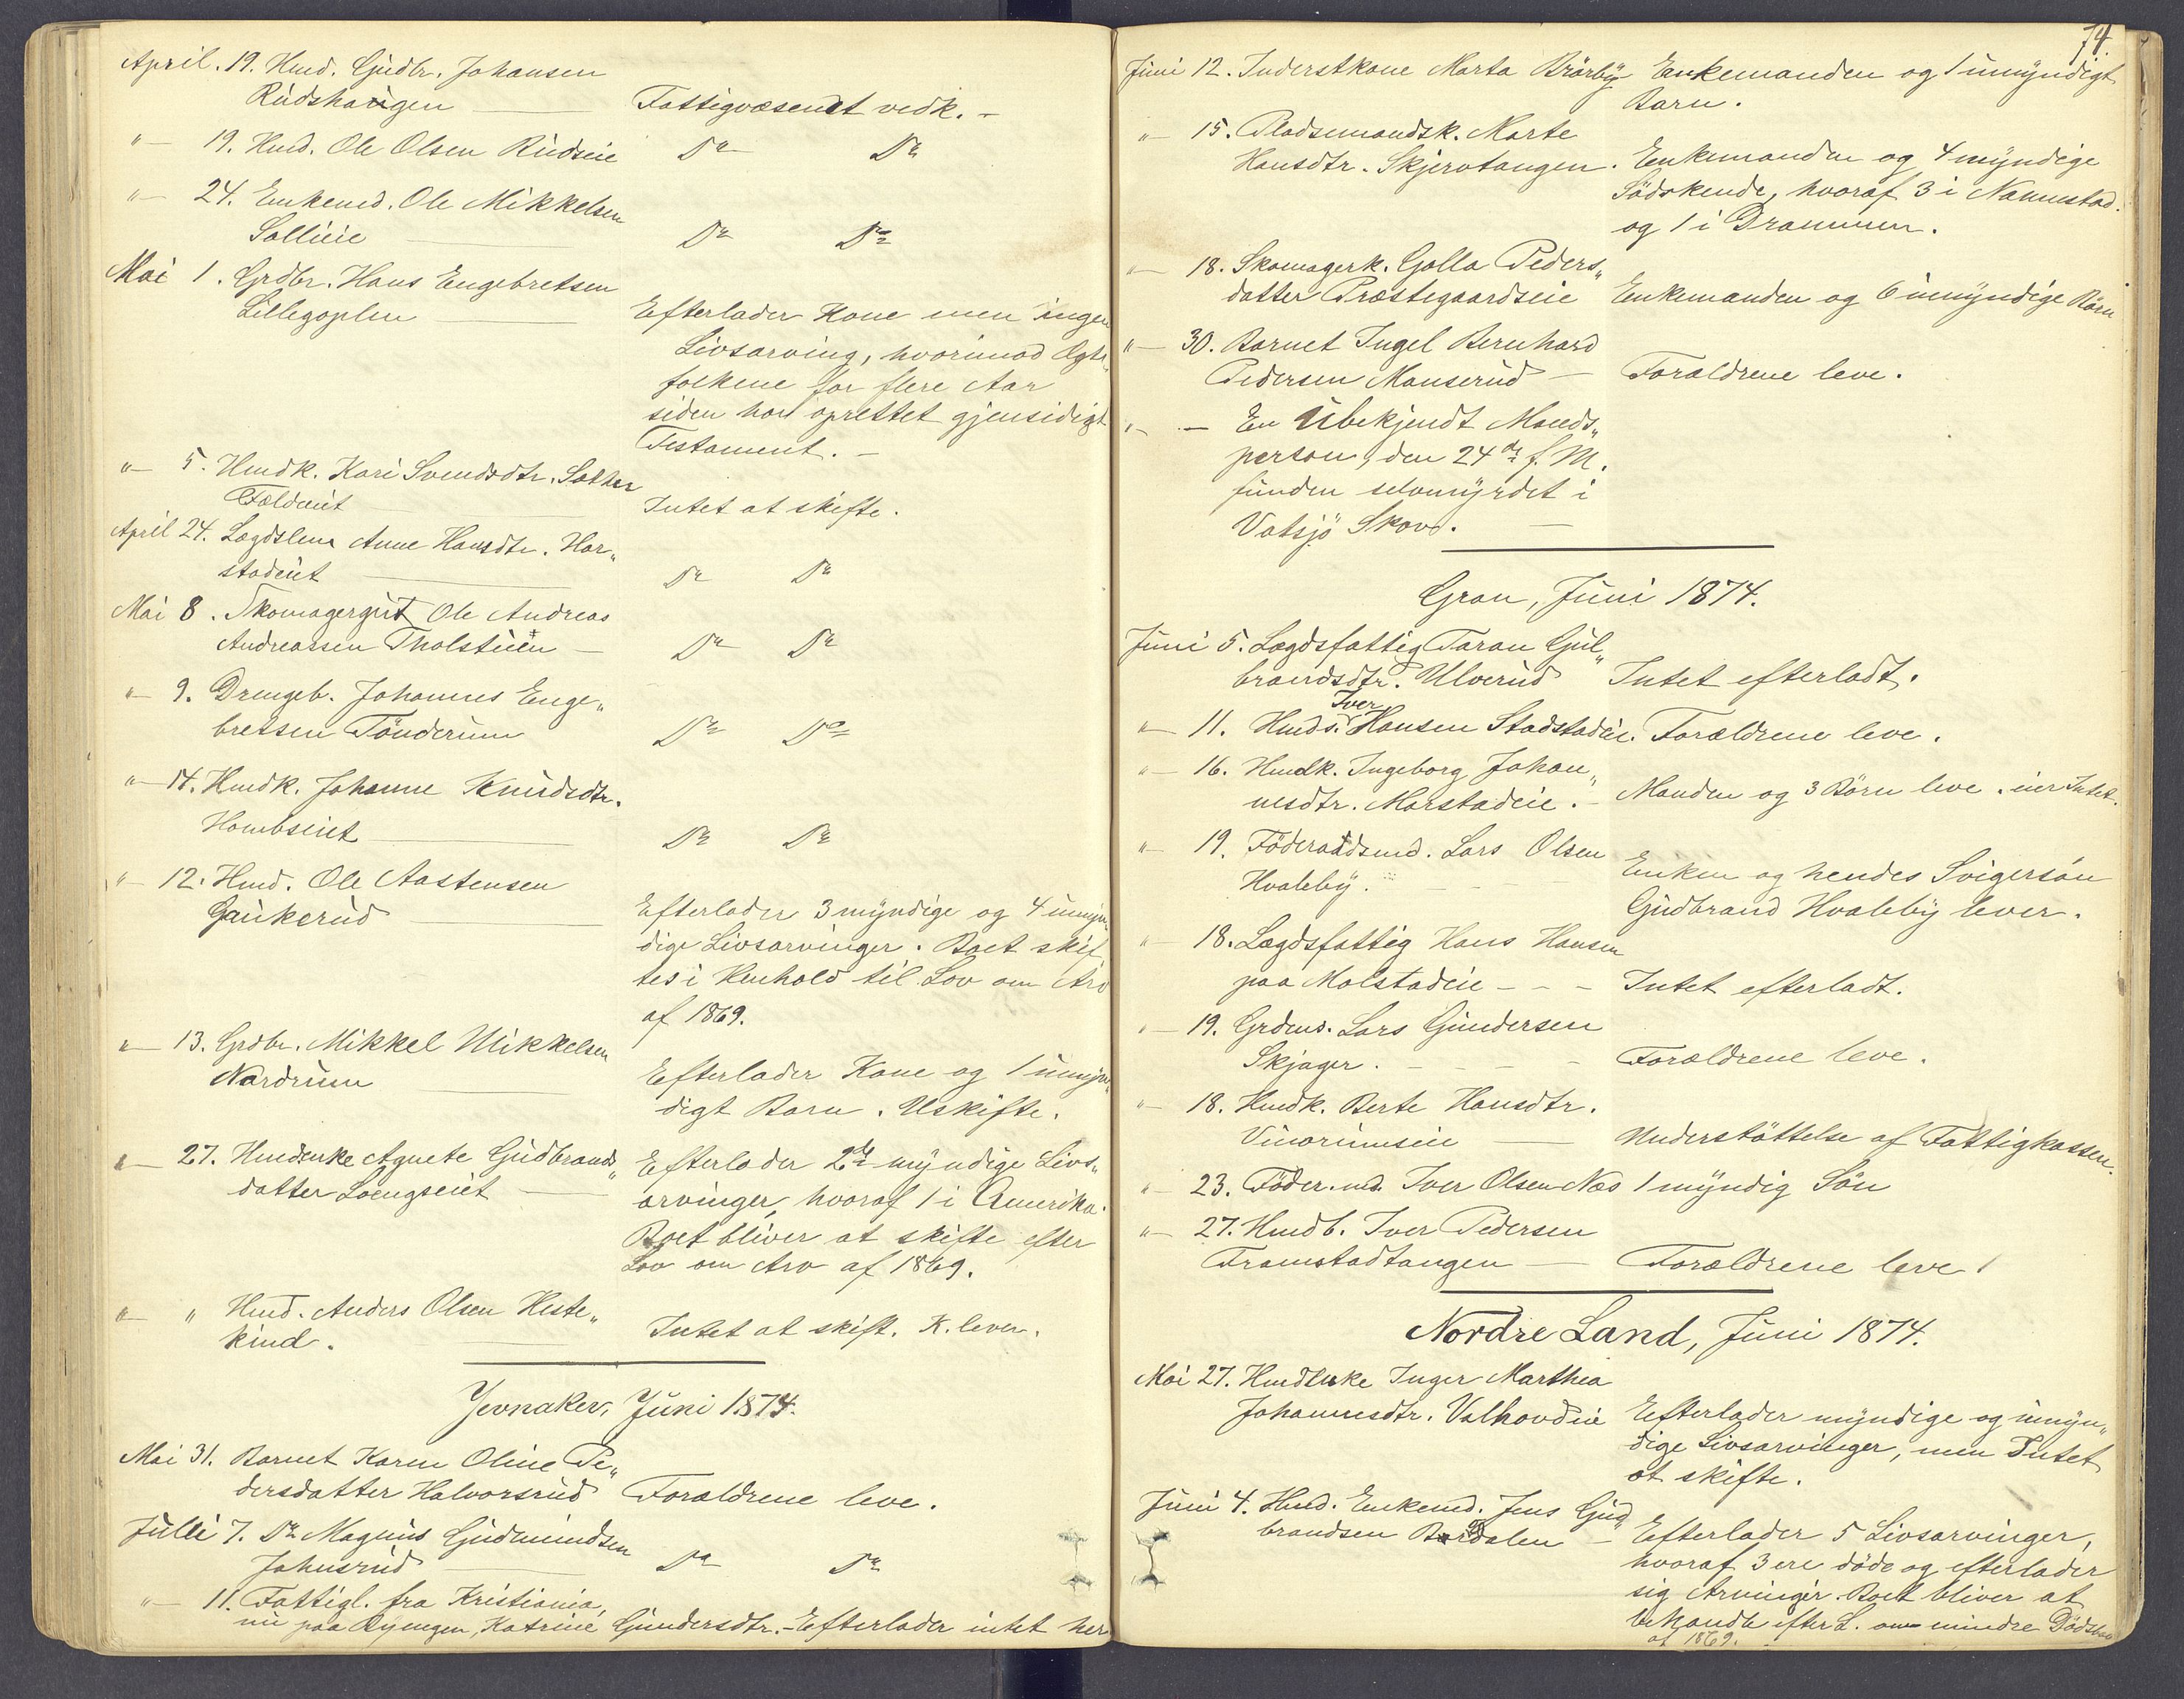 April. 19. Hmd. Gudbr. Johansen
Rudshaugen — Fattigvæsenet vedk. –
"– 19. Hmd. Ole Olsen Rudseie Do Do
"– 24. Enkemd. Ole Mikkelsen
Sollieie — Do Do
Mai 1. Grdbr. Hans Engebretsen
Lillegoplen — Efterlader Kone men ingen
Livsarving, hvorimod Ægte„
folkene for flere Aar
siden har oprettet gjensidigt
Testament. –
"– 5. Hmdk. Kari Svendsdtr. Søther
Intet at skifte.
April 24. Lægdslem Anne Hansdtr. Har„
stadeiet — Do Do
Mai 8. Skomagergut Ole Andreas
Andreassen Tholstuen – Do Do
"– 9. Drengeb. Johannes Enge„
bretsen Tönderum Do Do
"– 14. Hmdk. Johanne Knudsdtr.
Hombseiet — Do Do
"– 12. Hmd. Ole Aastensen
Gaukerud — Efterlader 3 myndige og 4 umyn„
dige Livsarvinger. Boet skif
tes i Henhold til Lov om Arv
af 1869.
"– 13. Grdbr. Mikkel Mikkelsen
Nordrum — Efterlader Kone og 1 umyn„
digt Barn. Uskifte.
"– 27. Hmdenke Agnete Gudbrands„
datter Loengseiet — Efterlader 2de myndige Livs„
arvinger, hvoraf 1 i Amerika.
Boet bliver at skifte efter
Lov om Arv af 1869.
"– " Hmd. Anders Olsen Heste„
kind. — Intet at skift. K. lever.
Jevnaker, Juni 1874.
Mai 31. Barnet Karen Oline Pe„
dersdatter Halvorsrud Forældrene leve.
Julli 7. Do Magnus Gudmundsen
Johnsrud — Do Do
"– 11. Fattigl. fra Kristiania,
nu paa Rymgen, Katrine Gundersdtr. – Efterlader intet her
74.
Juni 12. Inderstkone Marta Brörby Enkemanden og 1 umyndigt
Barn.
"– 15. Pladsemandsk. Marte
Hansdtr. Skjervtangen. Enkemanden og 4 myndige
Södskende, hvoraf 3 i Nannestad.
og 1 i Drammen.
"– 18. Skomagerk. Golla Peders„
datter Præstegaardseie Enkemanden og 6 umyndige Börn
"– 30. Barnet Ingel Bernhard
Pedersen Monserud – Forældrene leve.
"– – En Ubekjendt Mands„
person, den 24de f. M.
funden selvmyrdet i
Vatsjö Skov. –
Gran, Juni 1874.
Juni 5. Lægdsfattig Taran Gul„
brandsdtr. Ulverud Intet efterladt.
"– 11. Hmds. Iver Hansen Stadstadeie. Forældrene leve.
"– 16. Hmdk. Ingeborg Johan„
nesdtr. Morstadeie. – Manden og 3 Börn leve. eier Intet.
"– 19. Föderaadsmd. Lars Olsen
Hvaleby. – – – Enken og hendes Svigersön
Gudbrand Hvaleby lever.
"– 18. Lægdsfattig Hans Hansen
paa Molstadeie – – – Intet efterladt.
"– 19. Grdms. Lars Gundersen
Skjager. – – – Forældrene leve.
"– 18. Hmdk. Berte Hansdtr.
Vinorumseie — Understöttelse af Fattigkassen.
"– 23. Föder.md. Iver Olsen Næs 1 myndig Sön
"– 27. Hmdb. Iver Pedersen
Framstadtangen — Forældrene leve
Nordre Land, Juni 1874.
Mai 27. Hmdenke Inger Marthea
Johannesdtr. Valhovdeie Efterlader myndige og umyn„
dige Livsarvinger, men Intet
at skifte.
Juni 4. Hmd. Enkemd. Jens Gud„
brandsen – Efterlader 5 Livsarvinger,
hvoraf 3 ere döde og efterlader
sig Arvinger. Boet bliver at
behandle efter L. om mindre Dödsbo
af 1869.